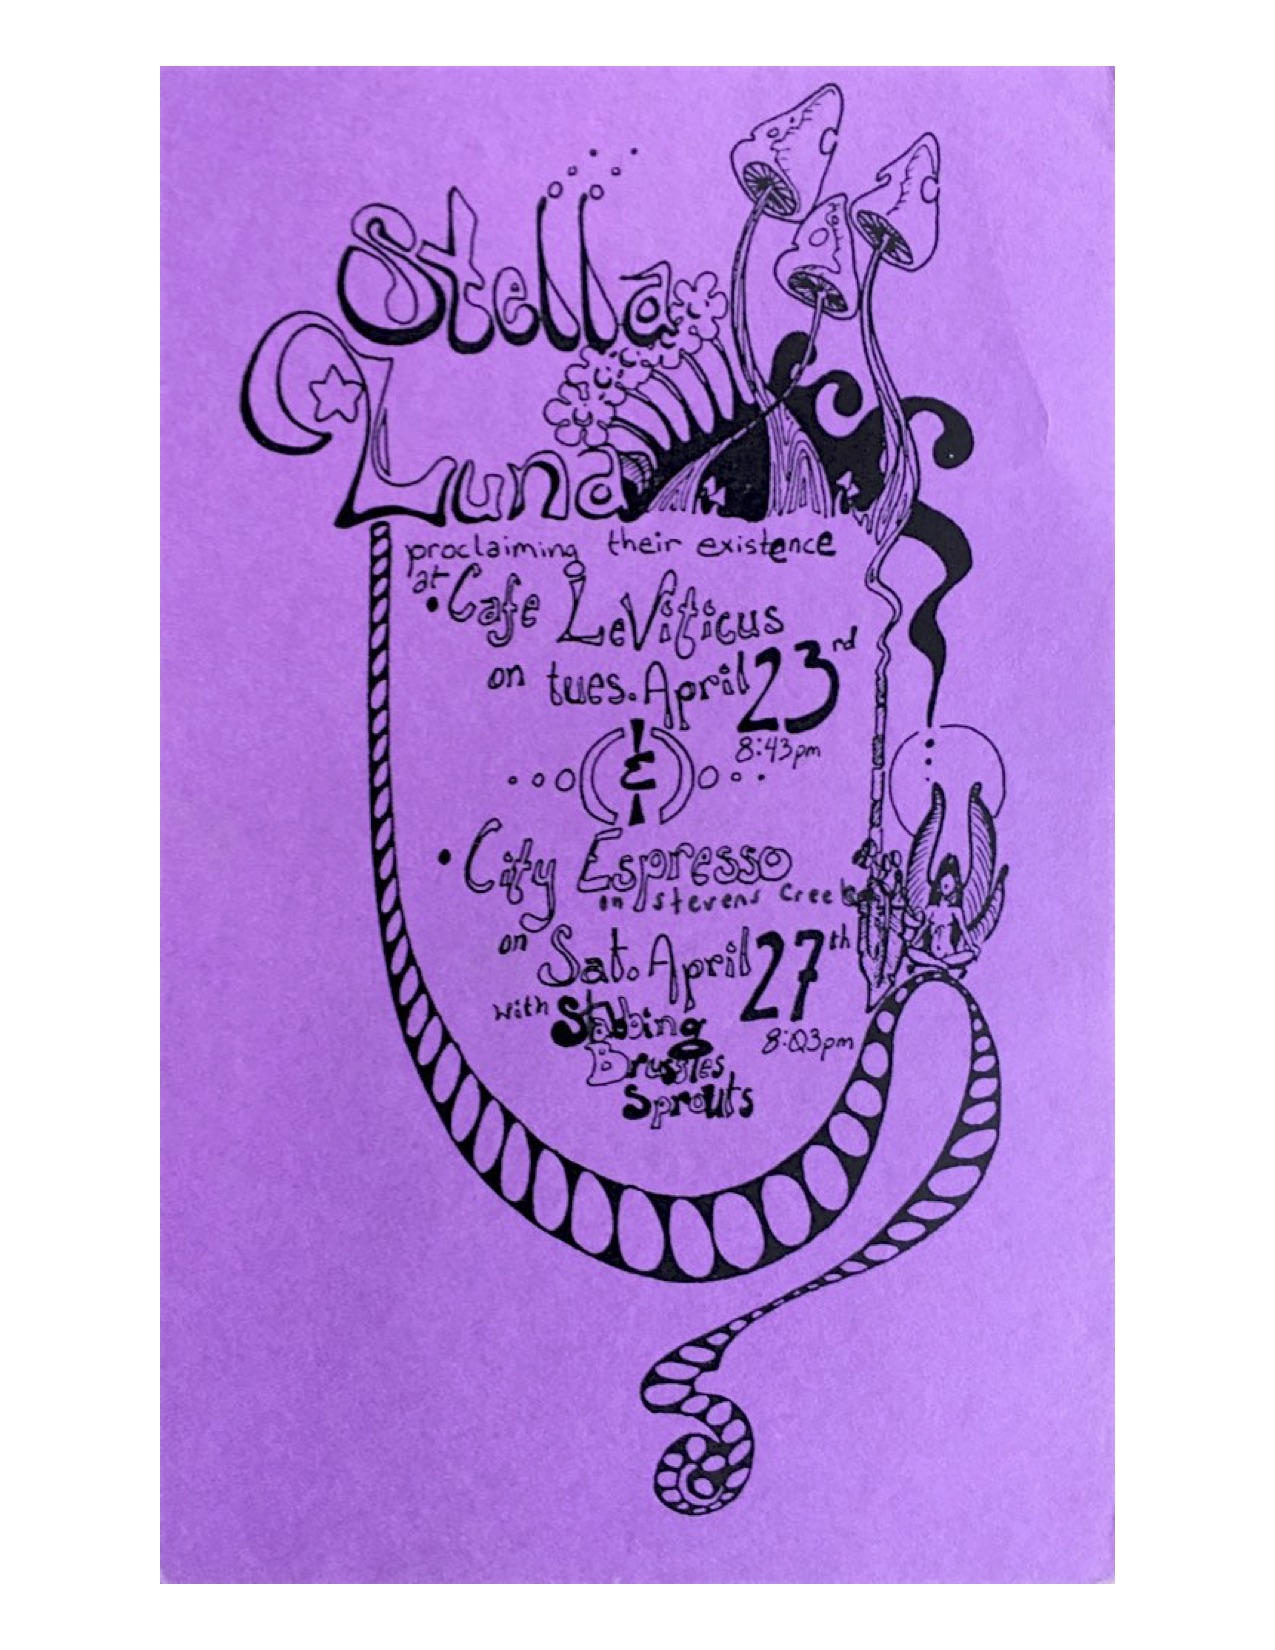 Stella
Luna
proclaiming their existence
at
• Cafe LeViticus
on tues. April 23rd
8:43pm
&
• City Espresso
on stevens Creek
on Sat. April 27th
8:03pm
with Stabbing
Brussles
Sprouts